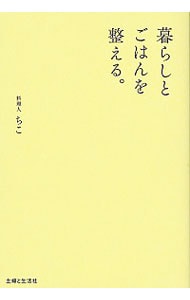 暮らしと
ごはんを
整える。
料理人 ちこ
主婦と生活社